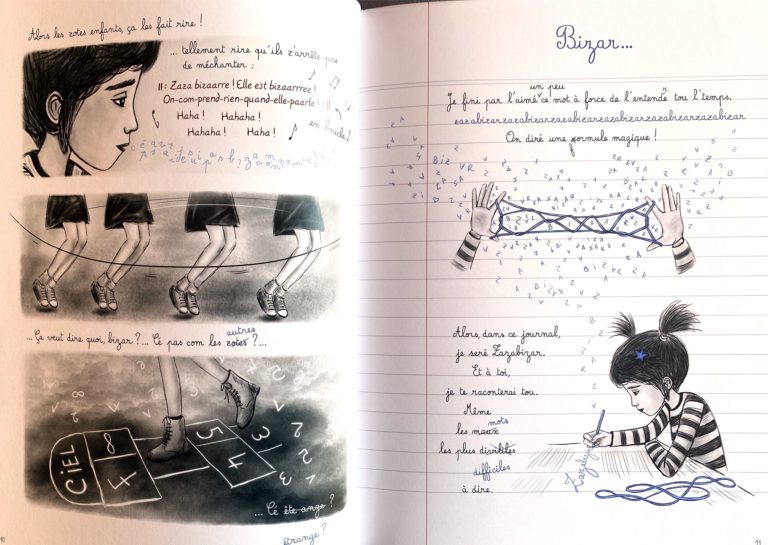 Alors les zotes enfants, ça les fait rire !
... tellement rire qu'ils z'arrête pas
de méchanter :
Zaza bizaarre ! Elle est bizaarrree !
On-com-prend-rien-quand-elle-paarle !
Haha ! Hahaha !
Hahaha ! Haha !
en boucle !
... Ça veut dire quoi, bizar ?... Cé pas com les zotes autres ?...
CIEL
8
7
5
4
3
2
3
... Cé ête ange ?
étrange ?
10
Bizar...
un peu
Je fini par l'aimé ce mot à force de l'entende r tou l'temps.
zazabizarzazabizarzazabizarzazabizarzazabizarzazabizar
On diré une formule magique !
f
Alors, dans ce journal,
je seré Zazabizar.
Et à toi,
je te raconterai tou.
Même
les maux mots
les plus divibiles
difficiles
à dire.
11